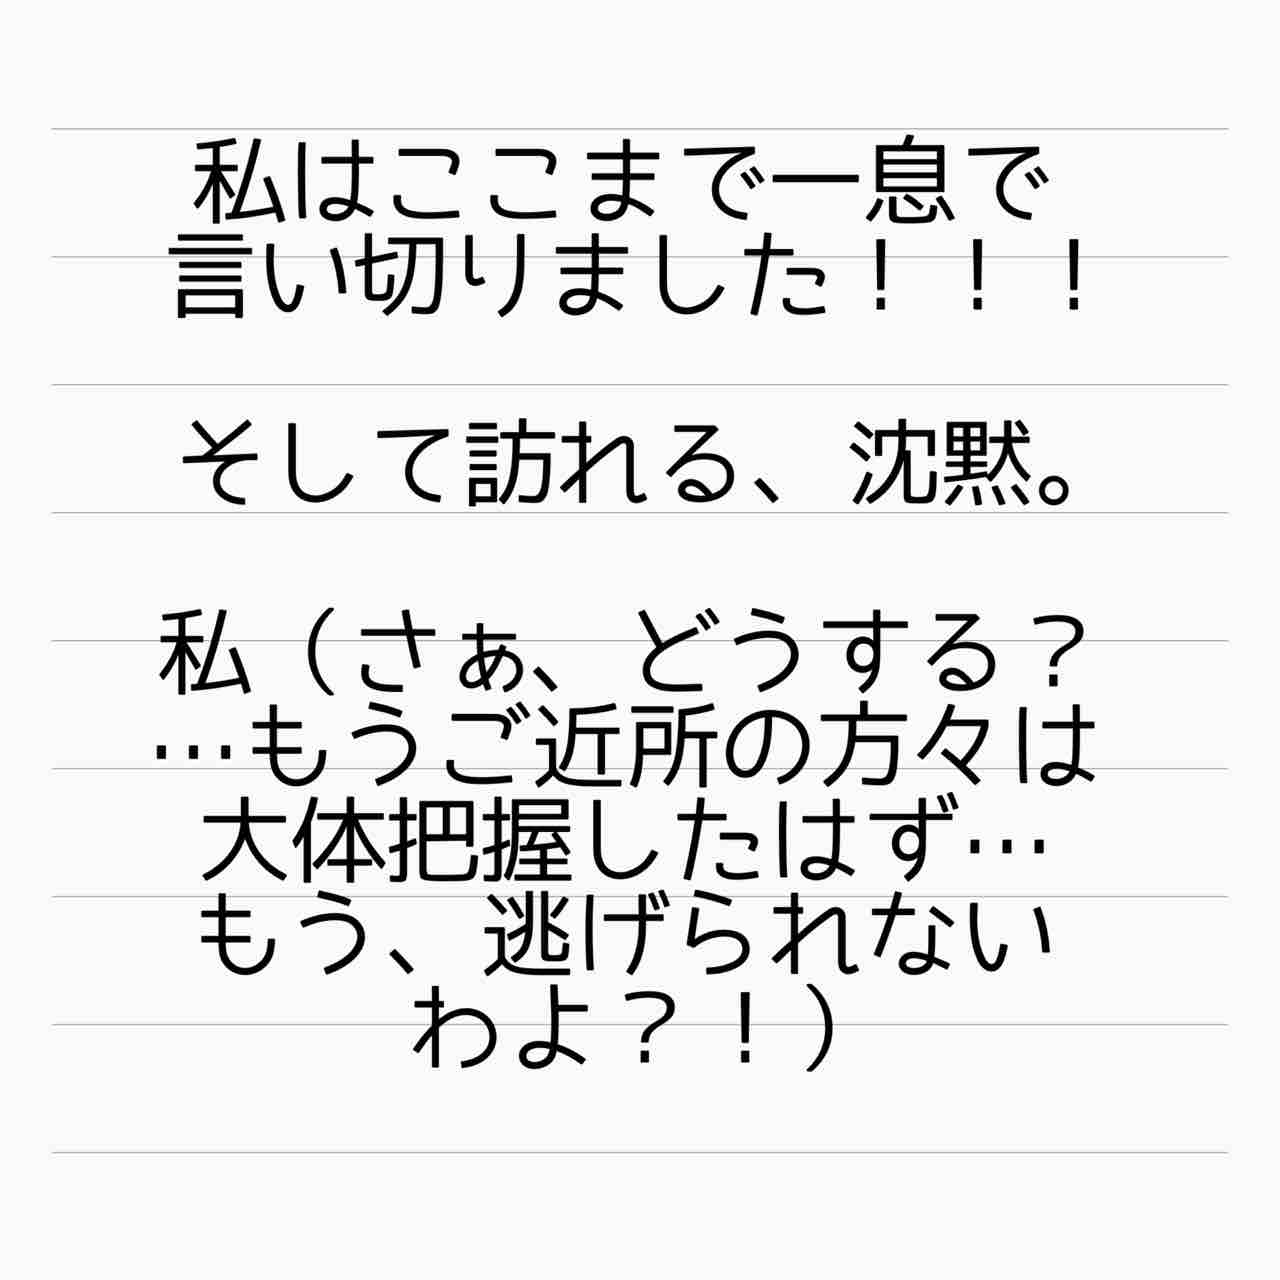 私はここまで一息で
言い切りました！！！
そして訪れる、沈黙。
私（さぁ、どうする？
…もうご近所の方々は
大体把握したはず…
もう、逃げられない
わよ？！）